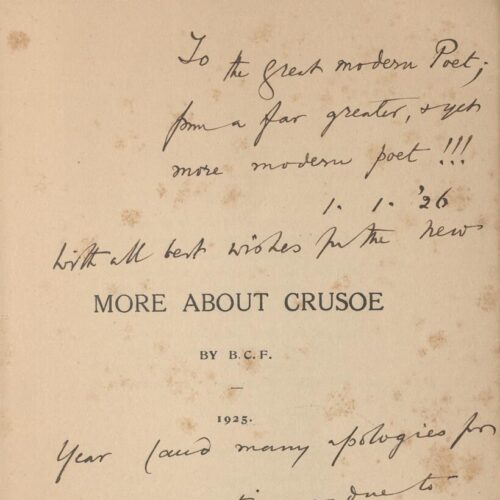 To the great modern Poet;
from a far greater, & yet
more modern poet!!!
1. 1. '26
With all best wishes for the new
MORE ABOUT CRUSOE
BY B.C.F.
1925.
Year (and many apologies for
due to